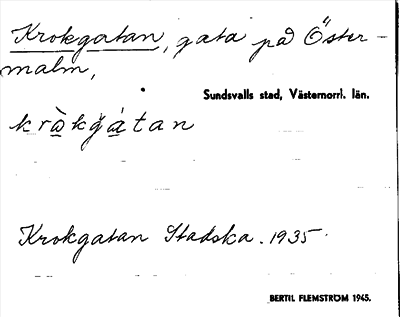 Krokgatan, gata på Öster-
malm,
Sundsvalls stad, Västernorrl. län.
kròkgátan
Krokgatan Stadska. 1935.
BERTIL FLEMSTRÖM 1945.